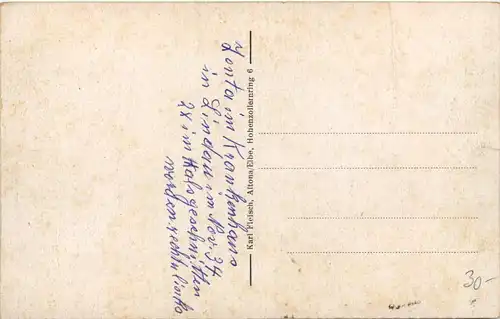 Lonta im Krankenhaus
in Lindau im Nov. 34
2x im Hals geschnitten
worden rechts links
Karl Fleisch, Altona/Elbe, Hohenzollernring 6
30-